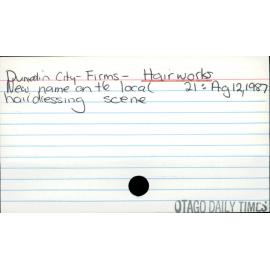 Dunedin City - Firms - Hairworks
New name on the local 21: Ag 12, 1987
hairdressing scene
OTAGO DAILY TIMES